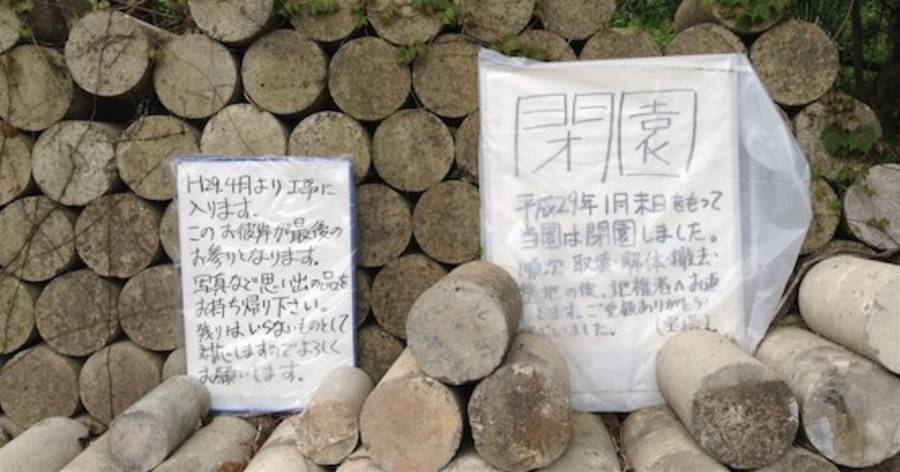 H29.4月より工事に
入ります。
この お彼岸が最後の
お参りとなります。
写真など思い出の品を
お持ち帰り下さい。
残りはいらないものとして
対応しますのでよろしく
お願いします。
閉園
平成29年1月末日をもって
当園は閉園しました。
順次 取壊・解体・撤去・
地の後、地権者へお返
します。ご愛顧ありがとう
いました。